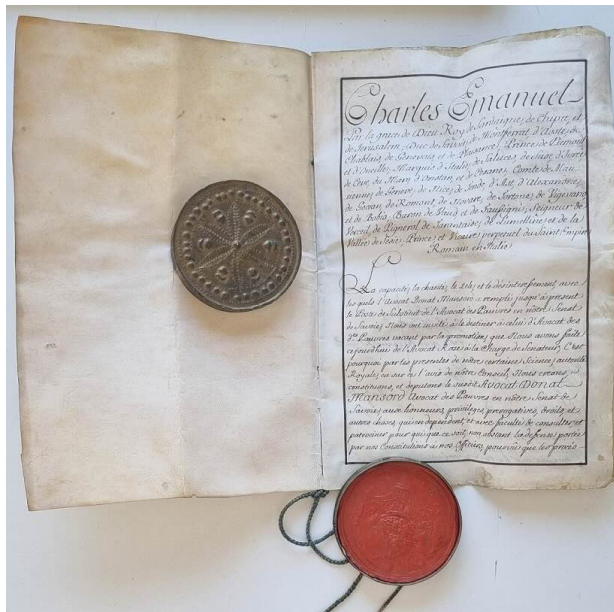 Charles Emanuel
Par la grace de Dieu Roy de Sardaigne, de Chipre, et
de Jerusalem, Duc de Savoie, de Montferrat, d'Aoste, de
Chablais, de Genevois et de Plaisance, Prince de Piemont
et d'Oneille, Marquis d'Italie, de Saluces, de Suse, d'Ivrée
de Ceve, du Maro, d'Oristan et de Cesane, Comte de Mau
rienne, de Geneve, de Nice, de Tende, d'Ast, d'Alexandrie,
de Gocean, de Romont, de Novare, de Tortone, de Vigevano
et de Bobio, Baron de Vaud et de Faussigni, Seigneur de
Verceil, de Pignerol, de Tarentaise, de Lumelline, et de la
Vallée de Sesie, Prince, et Vicaire perpetuel du Saint Empire
Romain en Italie.
La capacité, la charité, le zele, et le désinteressement, avec
les quels l'Avocat Donat Mansord a rempli jusqu'à present
le Poste de Substitut de l'Avocat des Pauvres en nôtre Senat
de Savoie, Nous ont invité à le destiner à celui d'Avocat des
d.ts Pauvres vacant par la promotion, que Nous avons faite
cejourdhui de l'Avocat à la Charge de Senateur. C'est
pourquoi par les presentes de nôtre certaine Science, autorité
Royale, eu sur ce l'avis de nôtre Conseil, Nous creons,
constituons, et deputons le susdit Avocat Donat
Mansord Avocat des Pauvres en nôtre Senat de
Savoie, aux honneurs, privileges, prerogatives, droits, et
autres choses, qui en dependent, et avec faculté de consulter, et
patrociner pour qui que ce soit, non obstant la defense portée
par nos Constitutions à nos Officiers, pourvû que les proce-